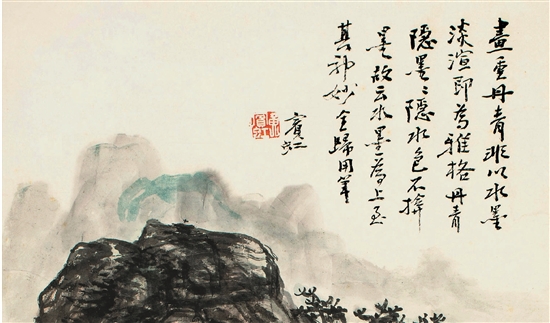 畫重丹青非以水墨
淡渲即為雅格丹青
隱墨〻隱水色不揜
墨故云水墨為上至
其神妙全歸用筆
賓虹
黃賓虹